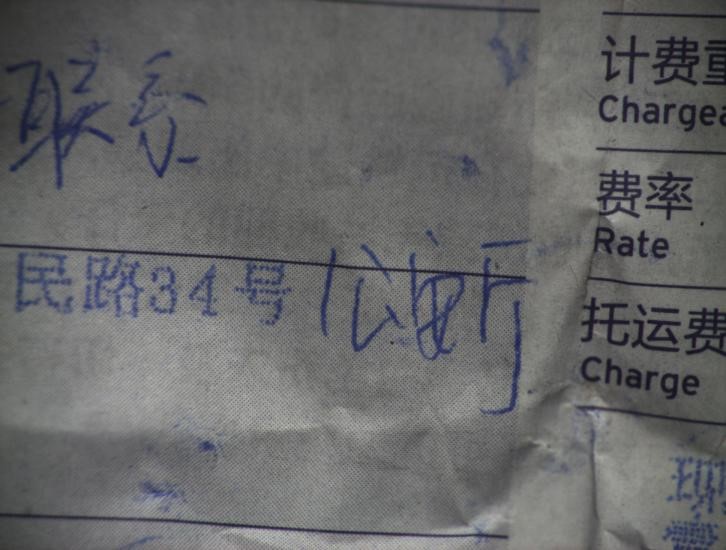 联系
计费重
Chargea
费率
Rate
民路34号 公安厅
托运费
Charge